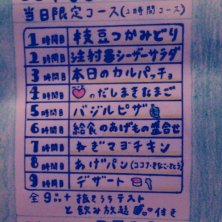 当日限定コース(2時間コース)
1時間目 枝豆つかみどり
2時間目 注射器シーザーサラダ
3時間目 本日のカルパッチョ
4時間目 のだしまきたまご
5時間目 バジルピザ
6時間目 給食のあげもの盛合せ
7時間目 ねぎマヨチキン
8時間目 あげパン(ココア・きなこ・さとう)
9時間目 デザート
全9品+抜きうちテスト
と飲み放題付き